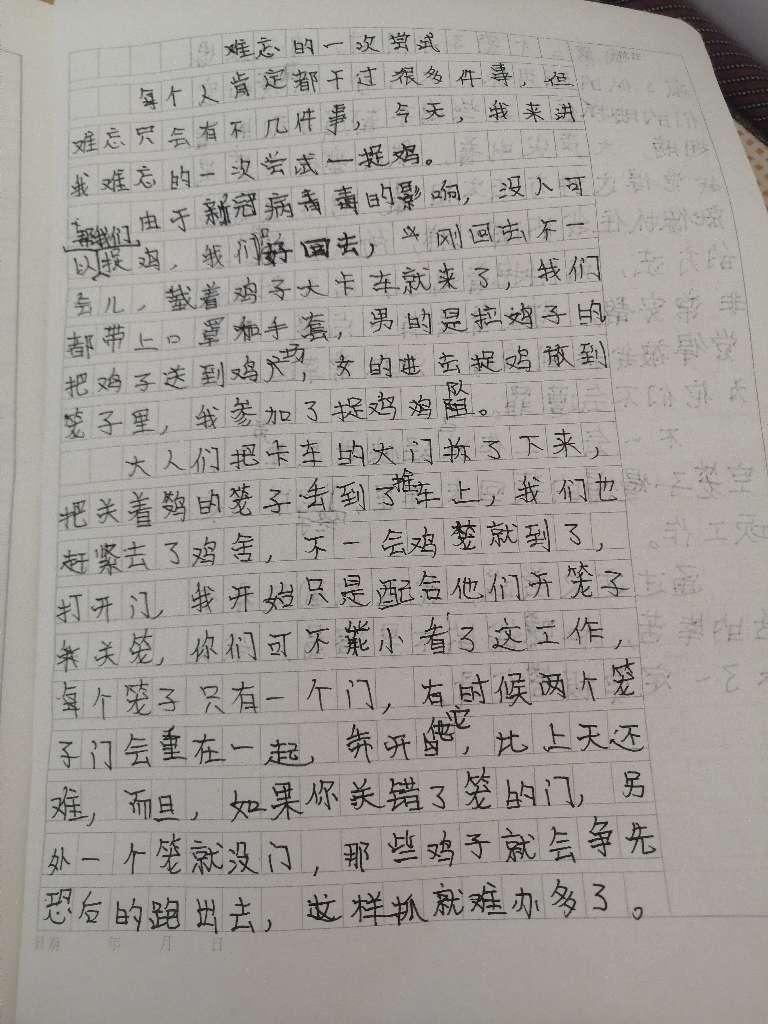 难忘的一次尝试
每个人肯定都干过很多件事，但
难忘只会有不几件事，今天，我来讲
我难忘的一次尝试—捉鸡。
由于新冠病毒毒的影响，没人可
以帮我们捉鸡，我们只好回去，刚回去不一
会儿，载着鸡子大卡车就来了，我们
都带上口罩和手套，男的是拉鸡子的
把鸡子送到鸡场，女的进去捉鸡放到
笼子里，我参加了捉鸡鸡队。
大人们把卡车的大门拆了下来，
把关着鸡的笼子丢到了推车上，我们也
赶紧去了鸡舍，不一会鸡笼就到了，
打开门，我开始只是配合他们开笼子
关笼，你们可不能小看了这工作，
每个笼子只有一个门，有时候两个笼
子门会重在一起，弄开它，比上天还
难，而且，如果你关错了笼的门，另
外一个笼就没门，那些鸡子就会争先
恐后的跑出去，这样抓就难办多了。
日期 年 月 日